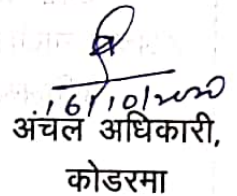 16/10/2020
अंचल अधिकारी,
कोडरमा